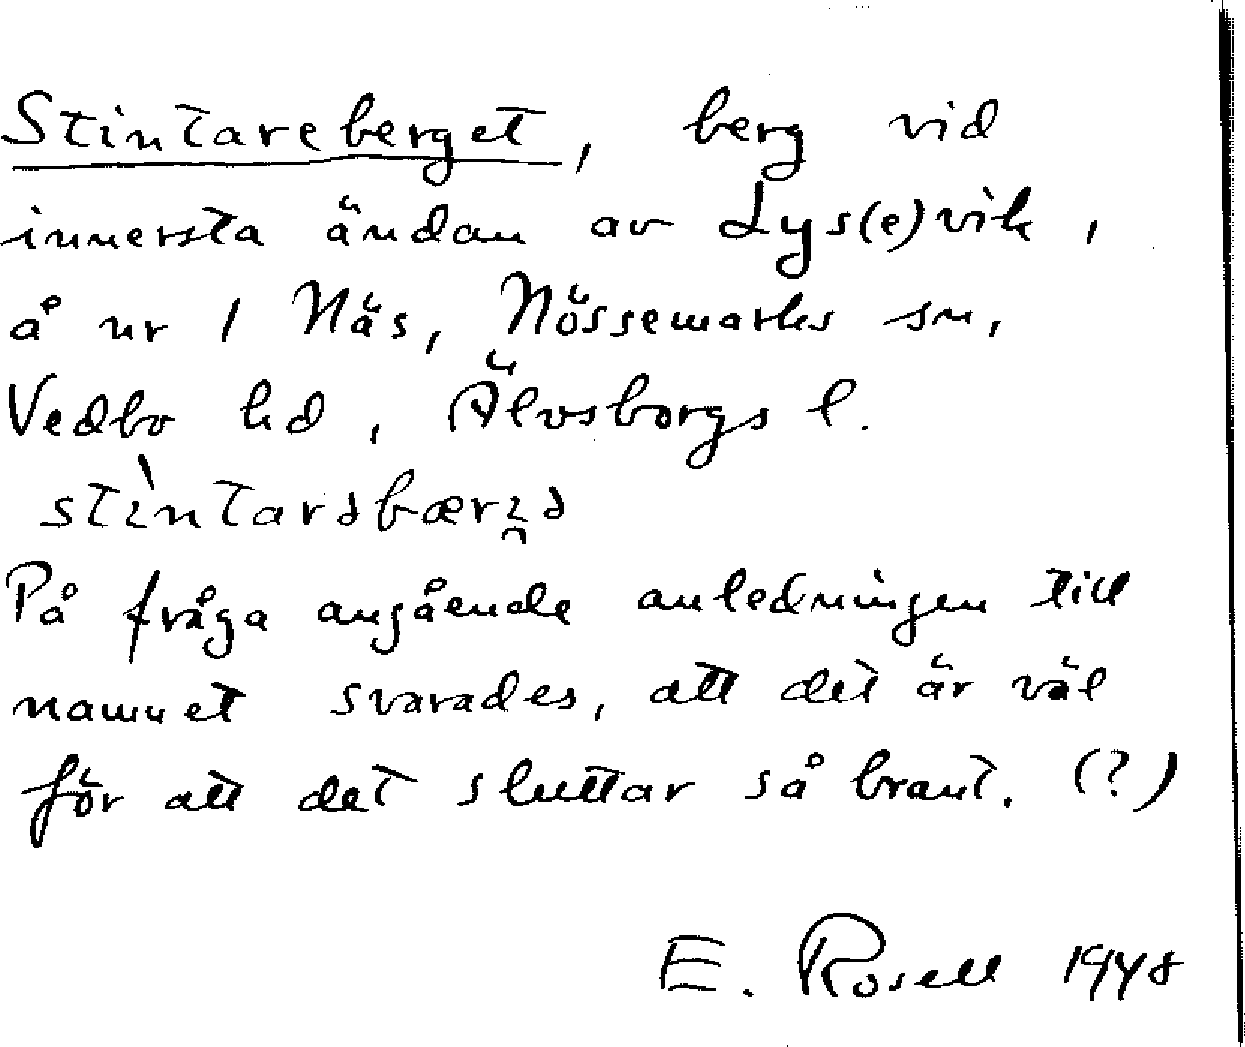 Stintareberget, berg vid
innersta ändan av Lys(e)vik,
å nr 1 Näs, Nössemarks sn,
Vedbo hd, Älvsborgs l.
På fråga angående anledningen till
namnet svarades, att det är väl
för att det sluttar så brant. (?)
E. Rosell 1948